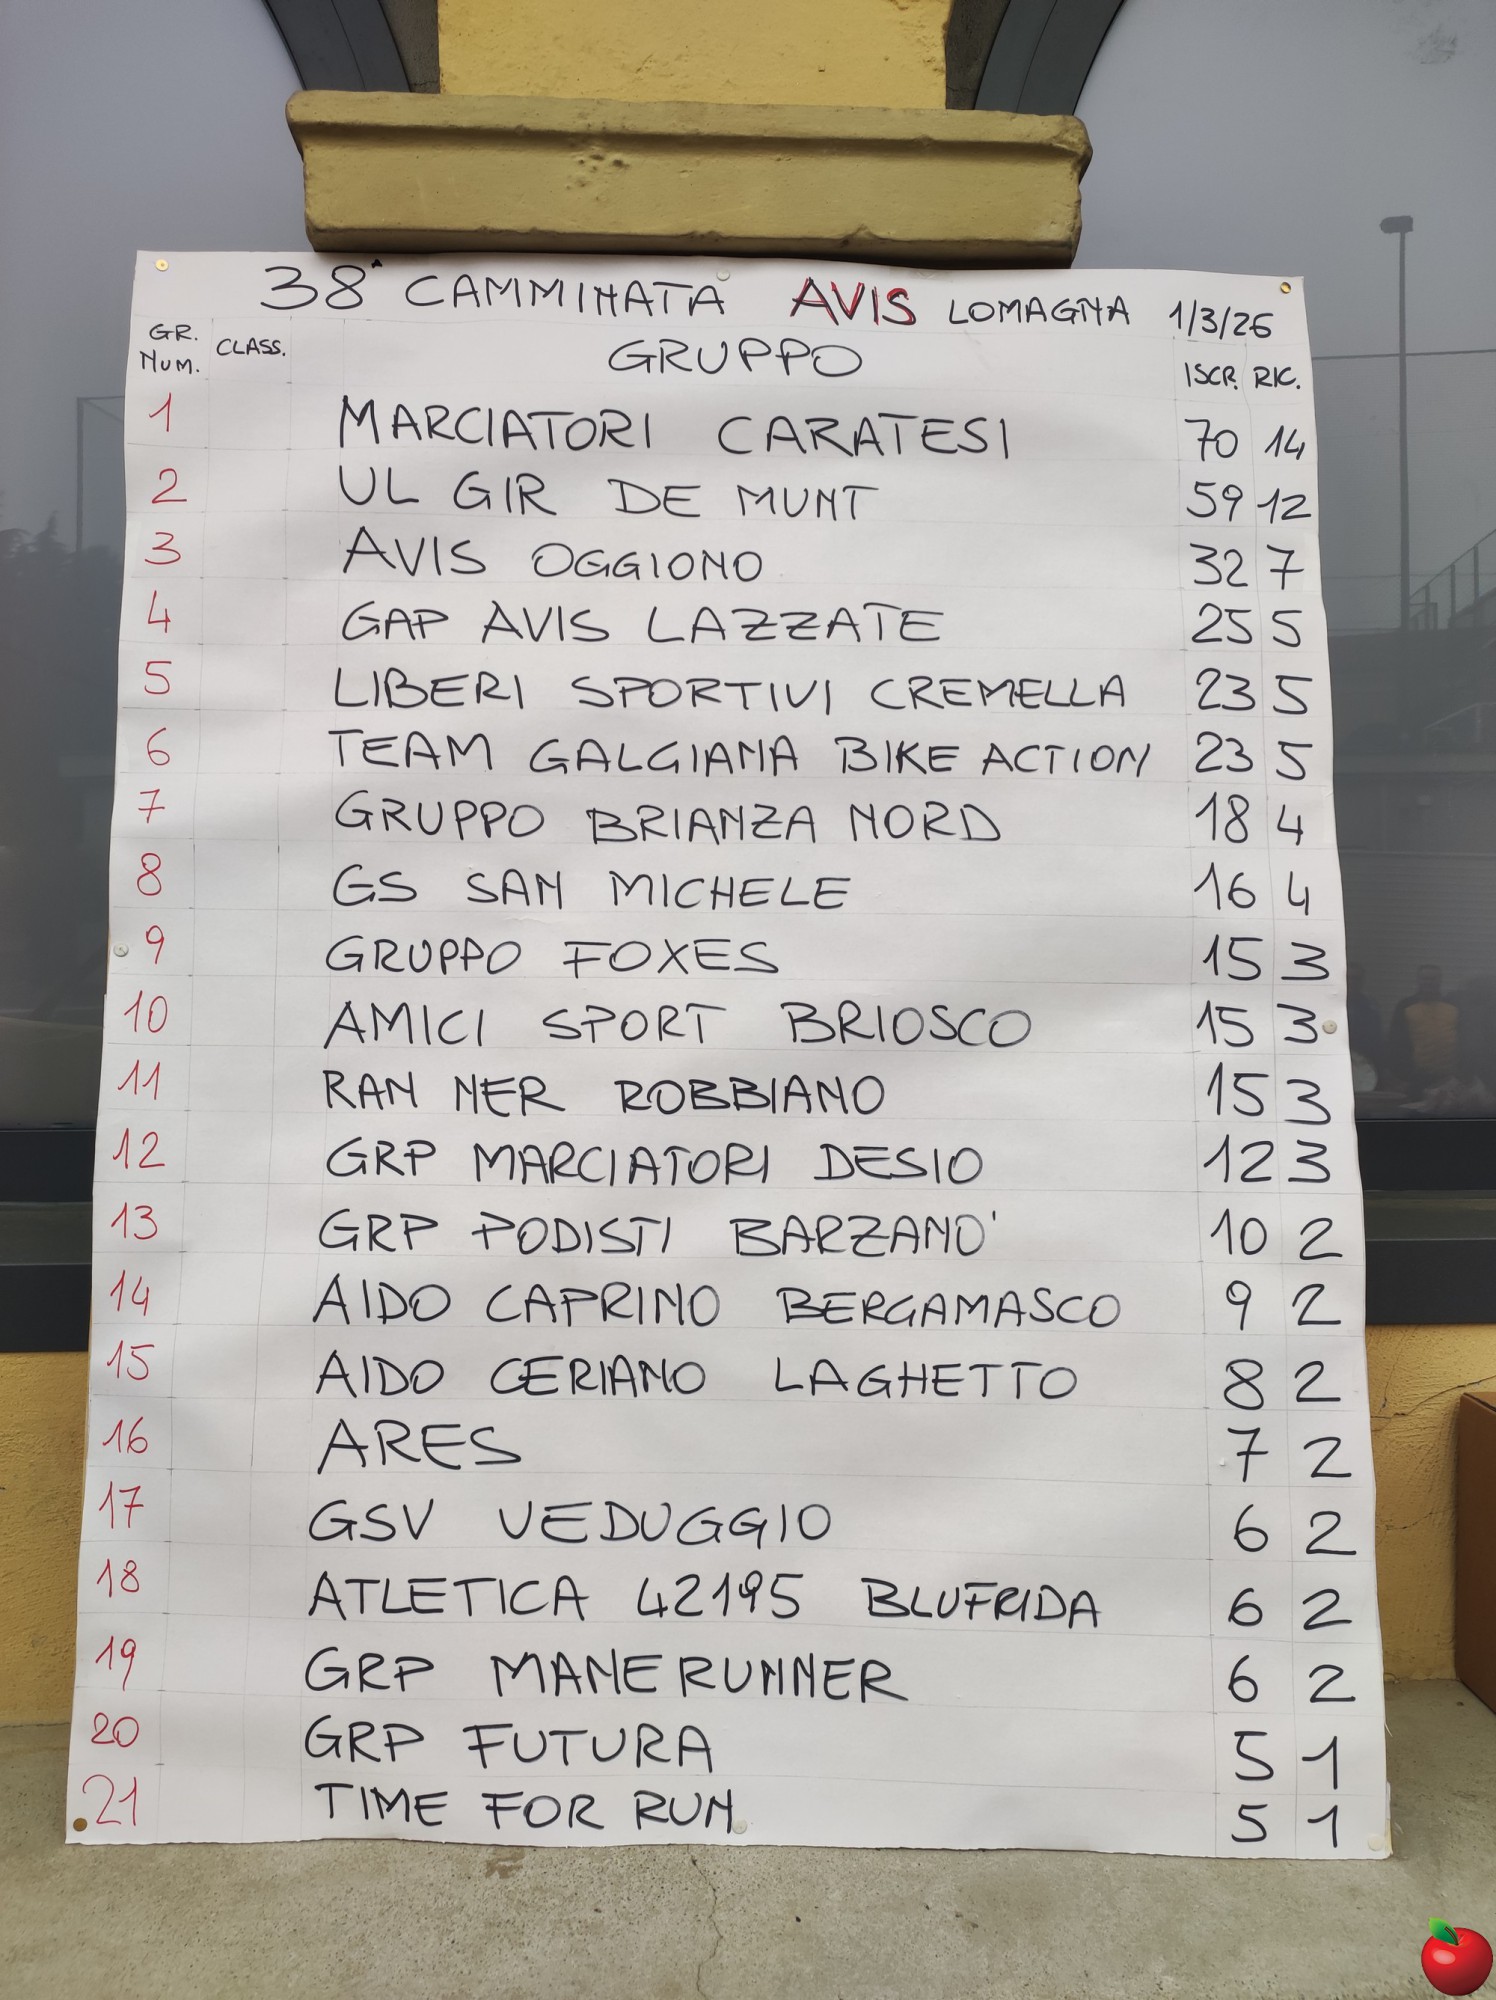 38ª CAMMINATA AVIS LOMAGNA 1/3/26
GR. NUM. CLASS. GRUPPO ISCR. RIC.
1 MARCIATORI CARATESI 70 14
2 UL GIR DE MUNT 59 12
3 AVIS OGGIONO 32 7
4 GAP AVIS LAZZATE 25 5
5 LIBERI SPORTIVI CREMELLA 23 5
6 TEAM GALGIANA BIKE ACTION 23 5
7 GRUPPO BRIANZA NORD 18 4
8 GS SAN MICHELE 16 4
9 GRUPPO FOXES 15 3
10 AMICI SPORT BRIOSCO 15 3
11 RAN NER ROBBIANO 15 3
12 GRP MARCIATORI DESIO 12 3
13 GRP PODISTI BARZANO' 10 2
14 AIDO CAPRINO BERGAMASCO 9 2
15 AIDO CERIANO LAGHETTO 8 2
16 ARES 7 2
17 GSV VEDUGGIO 6 2
18 ATLETICA 42195 BLUFRIDA 6 2
19 GRP MANERUNNER 6 2
20 GRP FUTURA 5 1
21 TIME FOR RUN 5 1